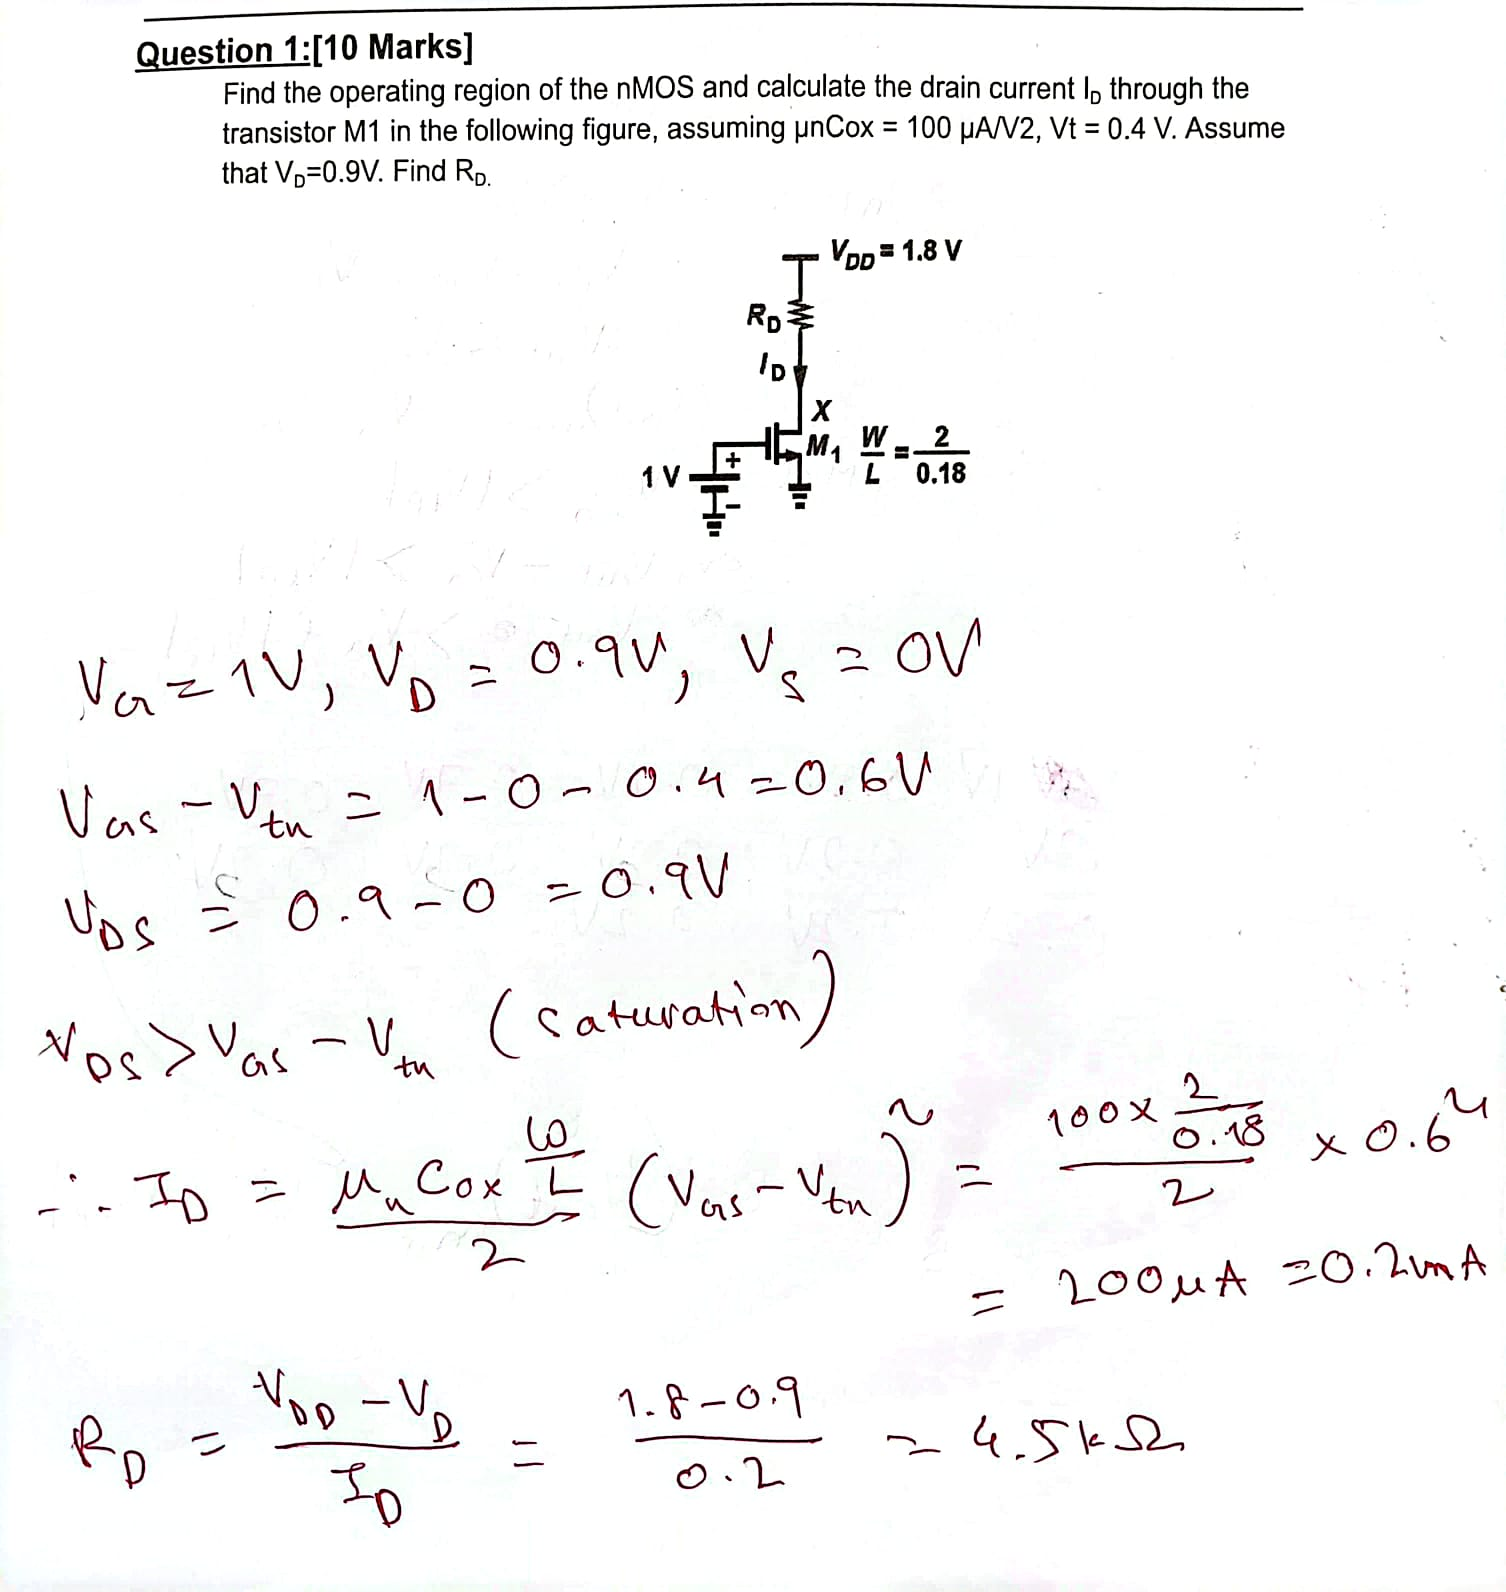 Question 1:[10 Marks]
Find the operating region of the nMOS and calculate the drain current I_D through the
transistor M1 in the following figure, assuming µnCox = 100 µA/V2, Vt = 0.4 V. Assume
that V_D=0.9V. Find R_D.
V_DD = 1.8 V
R_D
I_D
X
M_1 W/L = 2/0.18
1 V
+
-
V_G = 1V, V_D = 0.9V, V_S = 0V
V_GS - V_tn = 1 - 0 - 0.4 = 0.6V
V_DS = 0.9 - 0 = 0.9V
V_DS > V_GS - V_tn (saturation)
∴ I_D = (µ_n Cox W/L)/2 (V_GS - V_tn)^2 = (100 x 2/0.18)/2 x 0.6^2
= 200µA = 0.2mA
R_D = (V_DD - V_D)/I_D = (1.8 - 0.9)/0.2 = 4.5kΩ